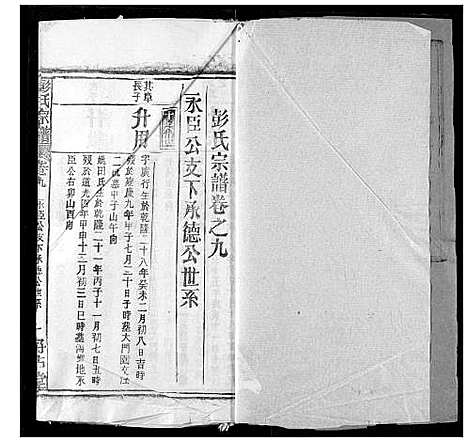 彭氏宗譜卷之九
永臣公支下承德公世系
其章長子
升用
字廣行生於乾隆二十八年癸未二月初八日吉時
歿於嘉慶九年甲子七月三十日子時墓大門
山午向
姚田氏生於乾隆二十一年丙子十一月初七日丑時
歿於道光四年甲申十三月初三日巳時墓
臣公右卯山酉向
彭氏宗譜
卷九 永臣公支下承德公世系 一